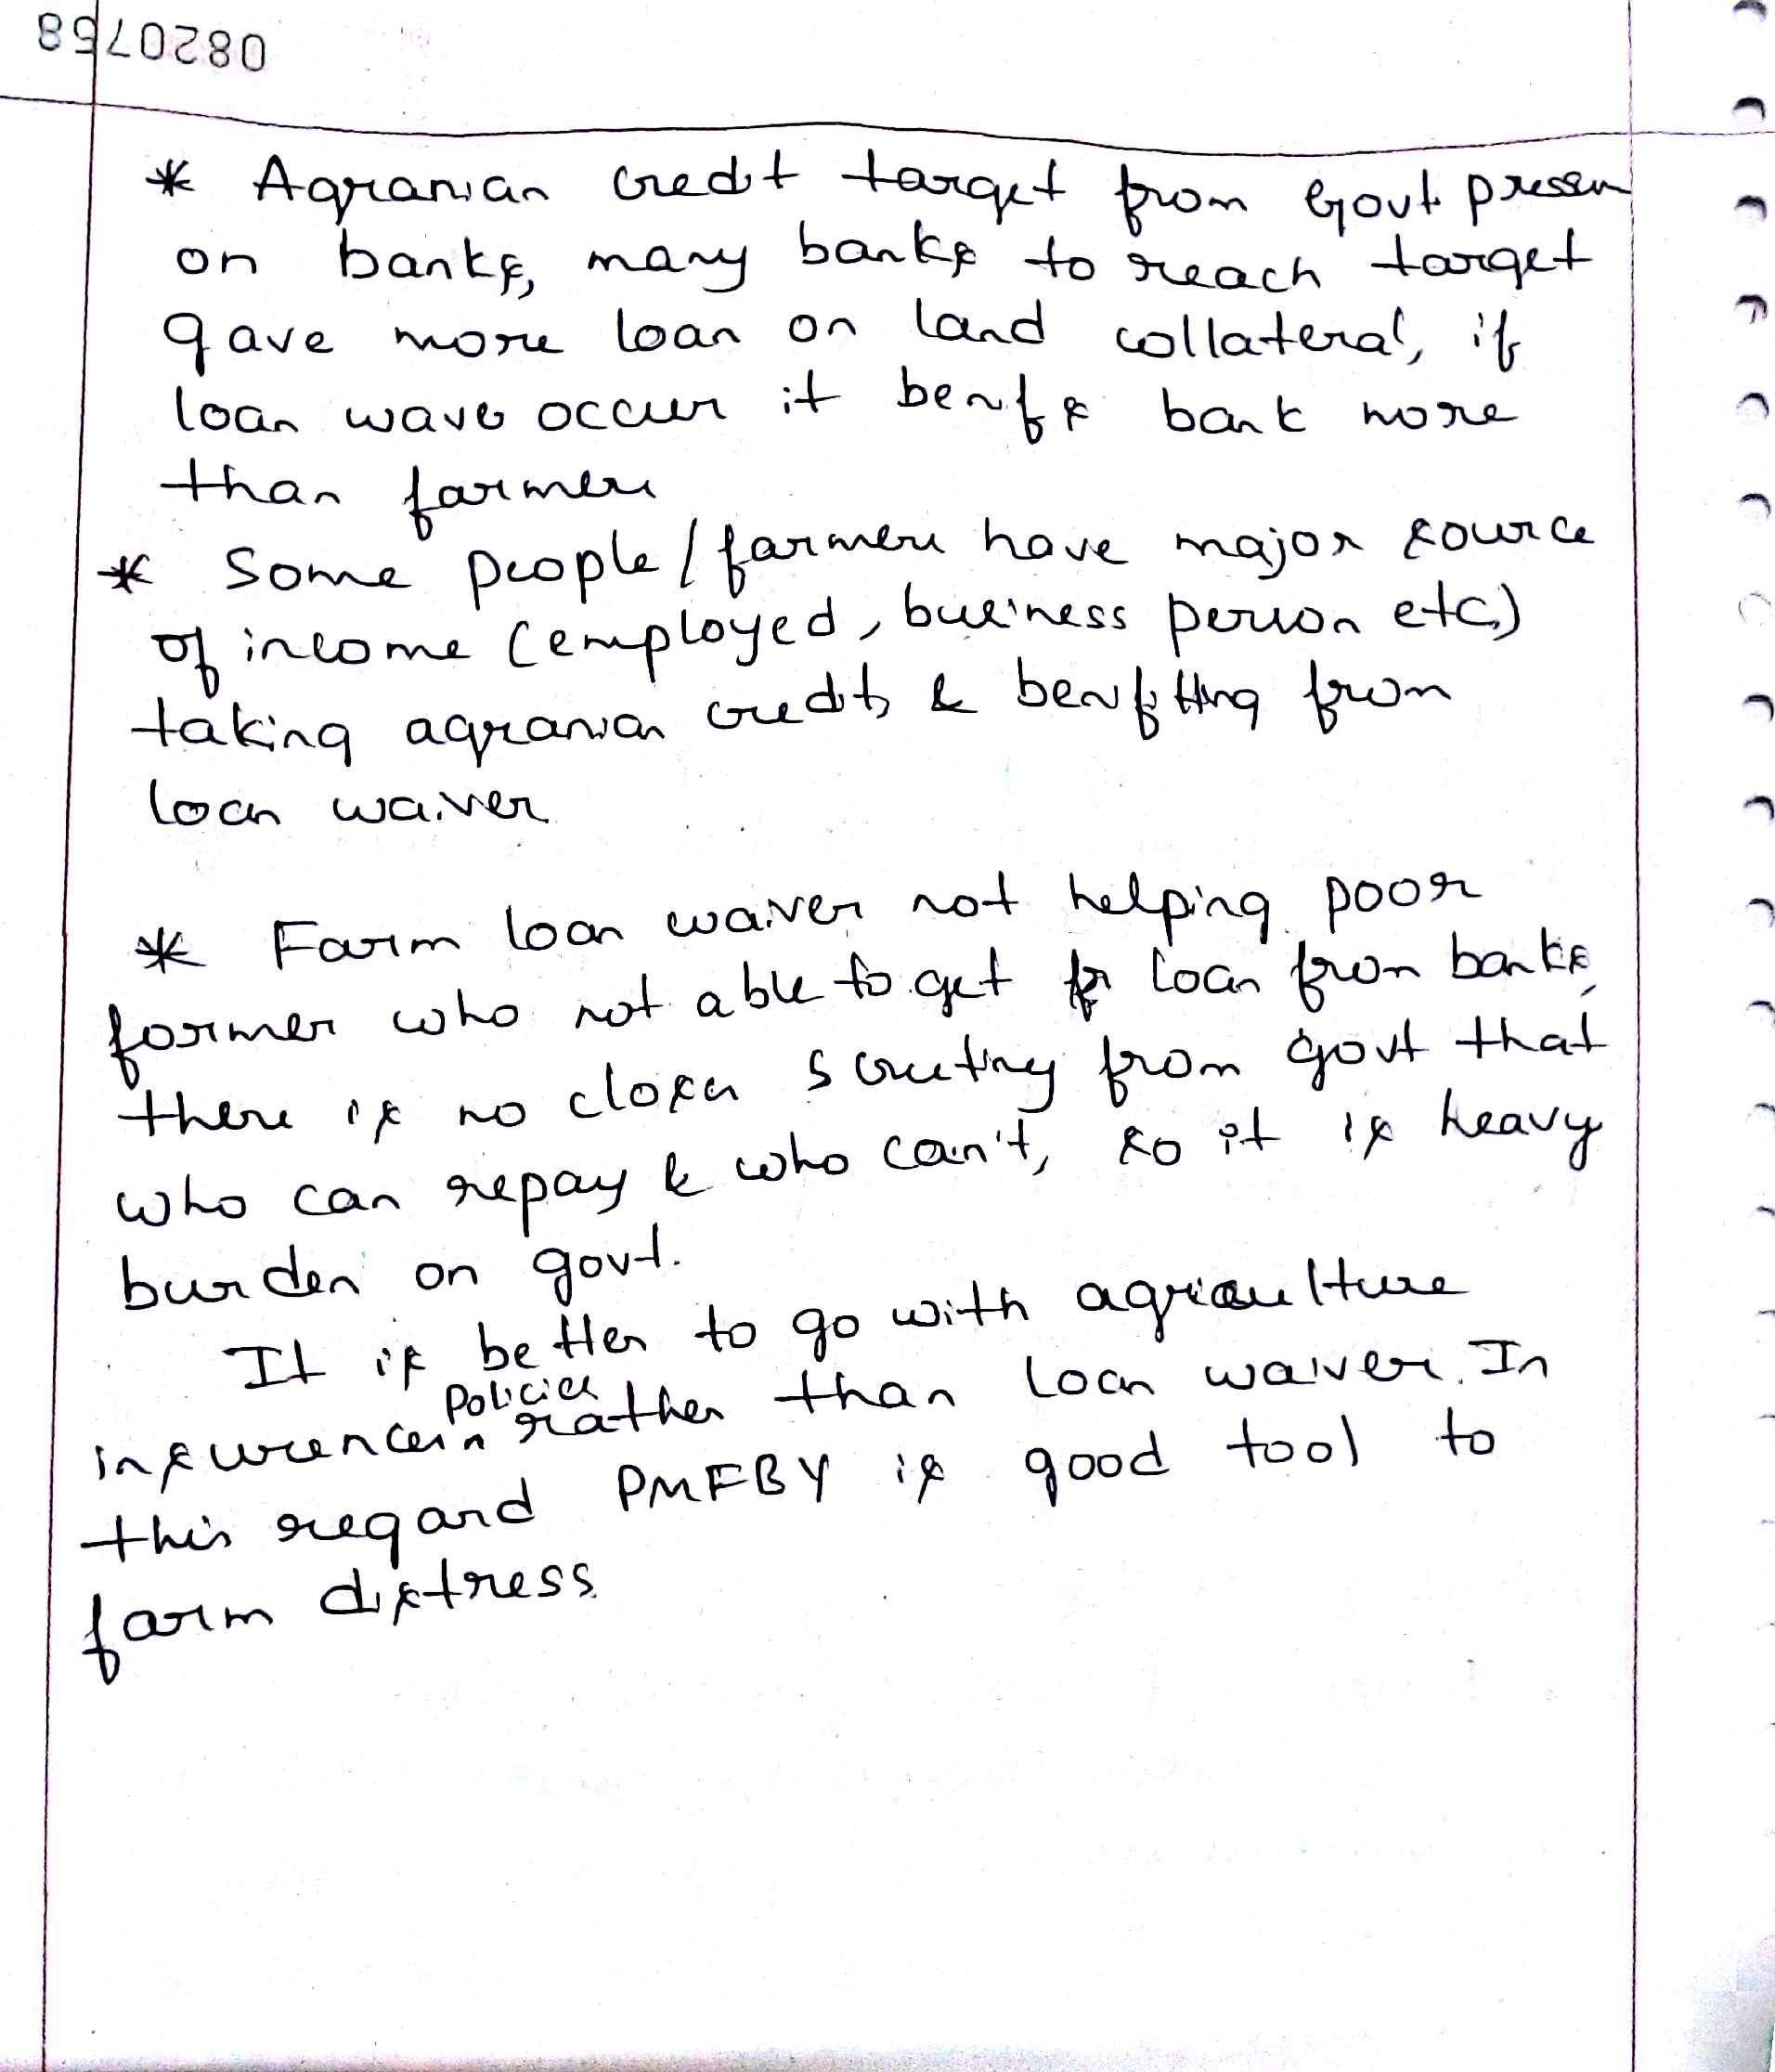 0820758
* Agrarian credit target from Govt pressure
on banks, many banks to reach target
gave more loan on land collateral, if
loan wave occur it benfs bank more
than farmers
* Some people / farmers have major source
of income (employed, business person etc)
taking agrarian credits & benfitting from
loan waiver
* Farm loan waiver not helping poor
farmer who not able to get loan from banks,
there is no closer scrutiny from govt that
who can repay & who can't, so it is heavy
burden on govt.
It is better to go with agriculture
insurence policies rather than loan waiver. In
this regard PMFBY is good tool to
farm distress